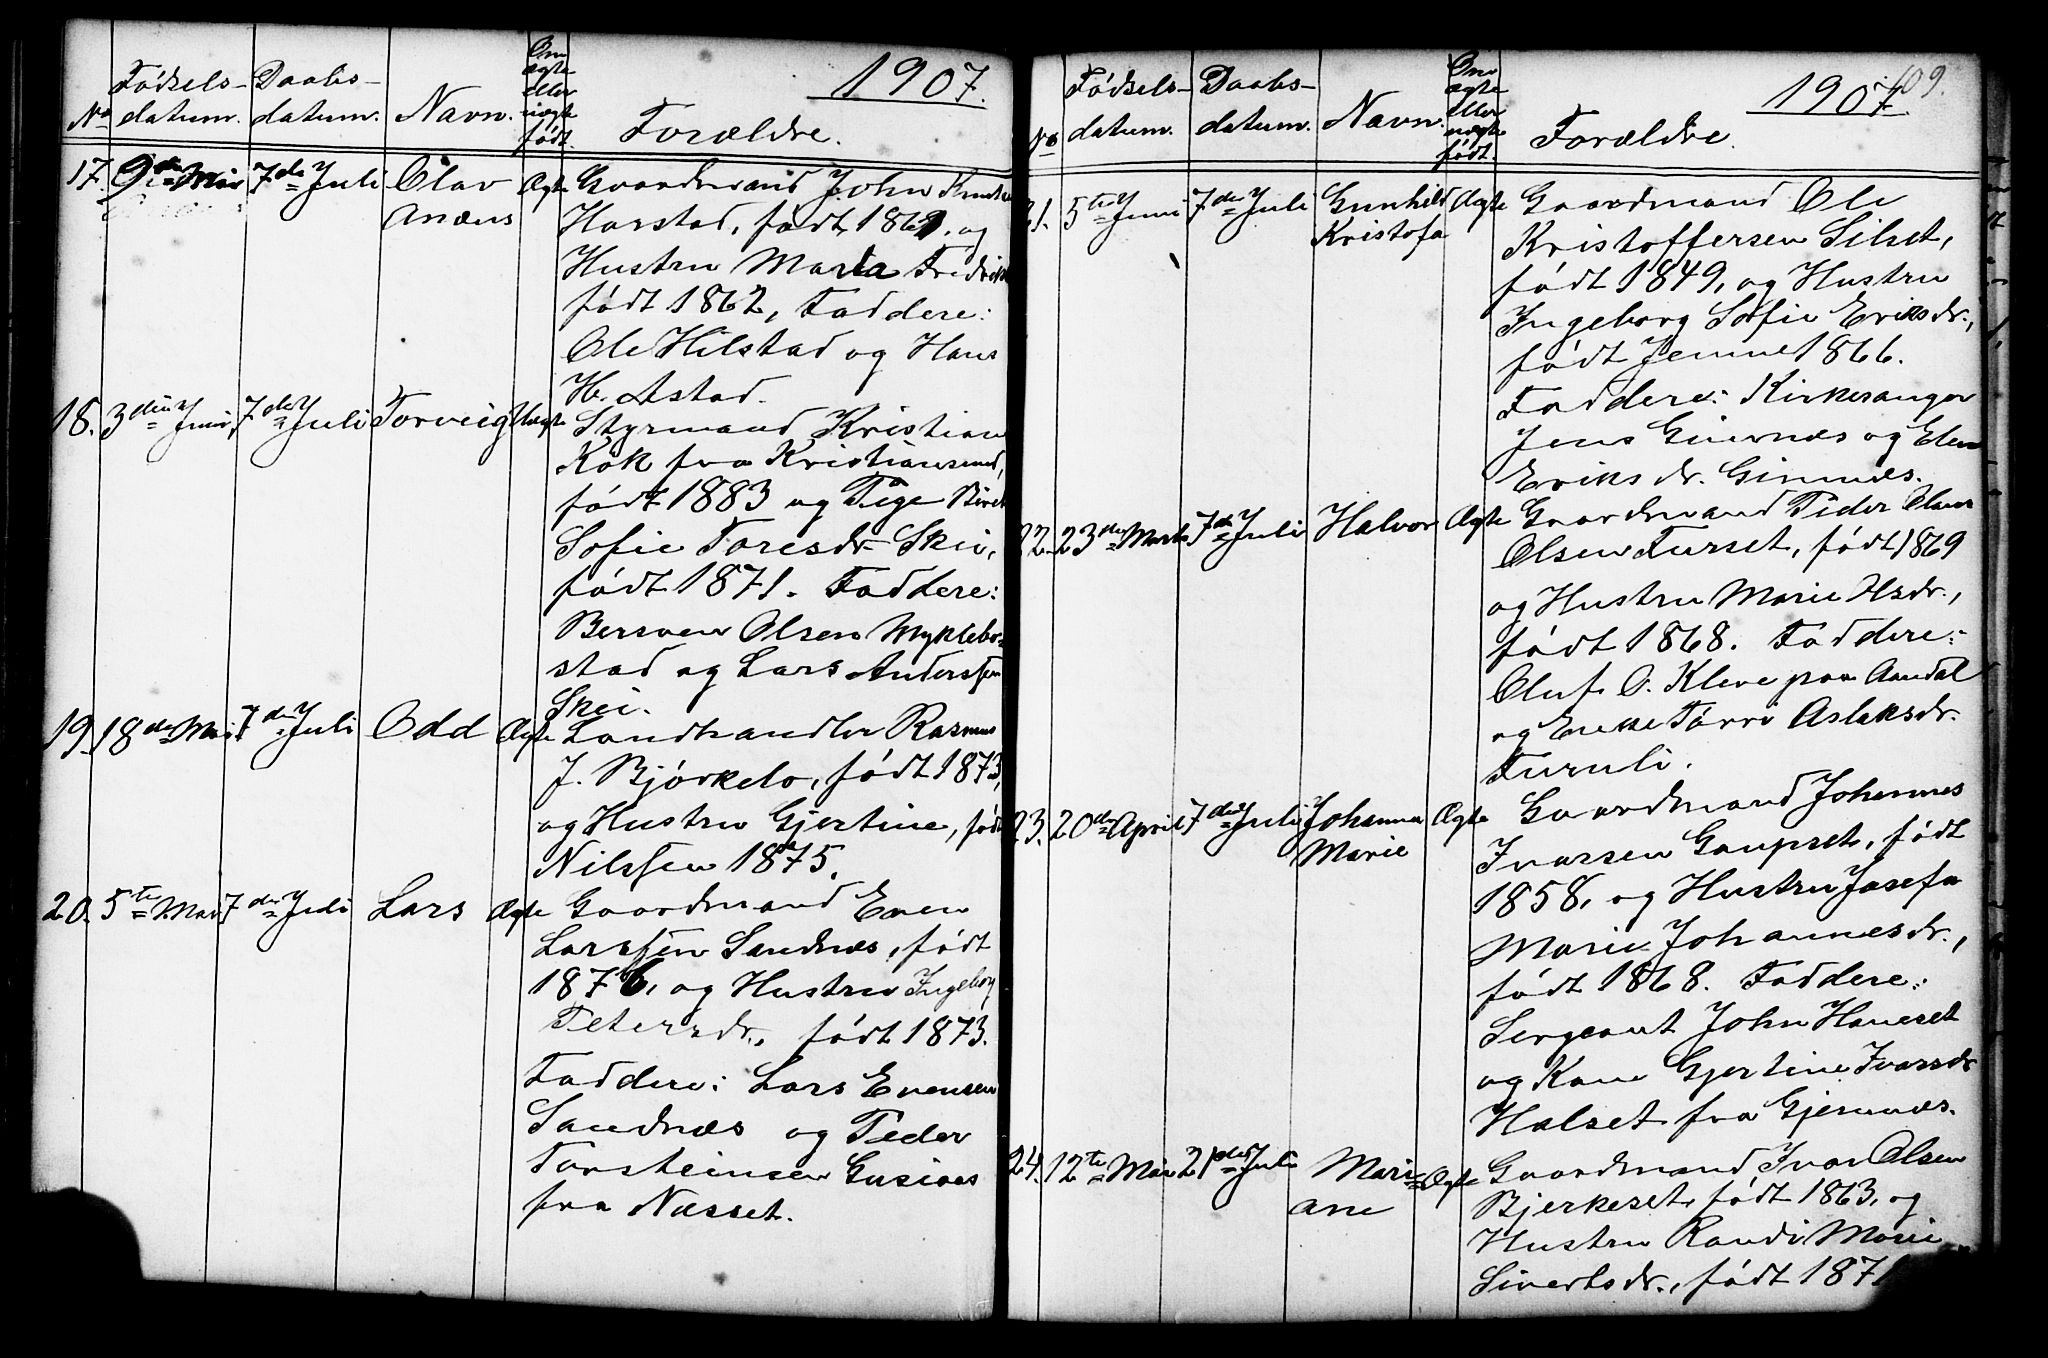 1907.
No Fødsels- datum. Daabs- datum. Navn. Om ægte eller uægte født. Forældre.
17. 9de Mai 7de Juli Olav Ægte Gaardmand John Knuts
Ananus Harstad, født 1861. og
Hustru Marta Fredrik
født 1862, Faddere:
Ole Hilstad og Hans
H. Astad.
18. 3die Juni 7de Juli Torveig Uægte Styrmand Kristian
Kok fra Kristiansund,
født 1883 og Pige Beret
Sofie Toresdr Skei,
født 1871. Faddere:
Bersven Olsen Myklebo-
stad og Lars Anderssen
Skei.
19. 18de Mai 7de Juli Odd Ægte Landhandler Rasmus
J. Bjørkelo, født 1873,
og Hustru Gjertine, født
Nilssen 1875.
20. 5te Mai 7de Juli Lars Ægte Gaardmand Even
Larssen Sandnæs, født
1876, og Hustru Ingeborg
Petersdr., født 1873.
Faddere: Lars Evensen
Sandnæs og Peder
Torsteinsen Gusiaas
fra Næsset.
109.
1907.
No Fødsels- datum. Daabs- datum. Navn. Om ægte eller uægte født. Forældre.
21. 5te Juni 7de Juli Gunhild Ægte Gaardmand Ole
Kristofa Kristoffersen Silset,
født 1849, og Hustru
Ingeborg Sofie Eriksdr.,
født 1866.
Faddere: Kirkesanger
Jens Gimnæs og Elen
Eriksdr. Gimnæs.
22. 23de Marts 7de Juli Halvor Ægte Gaardmand Peder Claus
Olsen Furset, født 1869
og Hustru Marie Asdr.,
født 1868. Faddere:
Oluf O. Kleve paa Aandal
og Enke Aslaksdr.
Furuli.
23. 20de April 7de Juli Johanna Ægte Gaardmand Johannes
Marie Ivarsen Gaupset, født
1858, og Hustru Josefa
Marie Johannesdr.,
født 1868. Faddere:
Sergeant John Haneset
og Kone Gjertine Ivarsdr
Halset fra Gjemnæs.
24. 12te Mai 21de Juli Mari= Ægte Gaardmand Ivar Olsen
ane Bjerkeset, født 1863, og
Hustru Randi Marie
Sivertsdr., født 1871